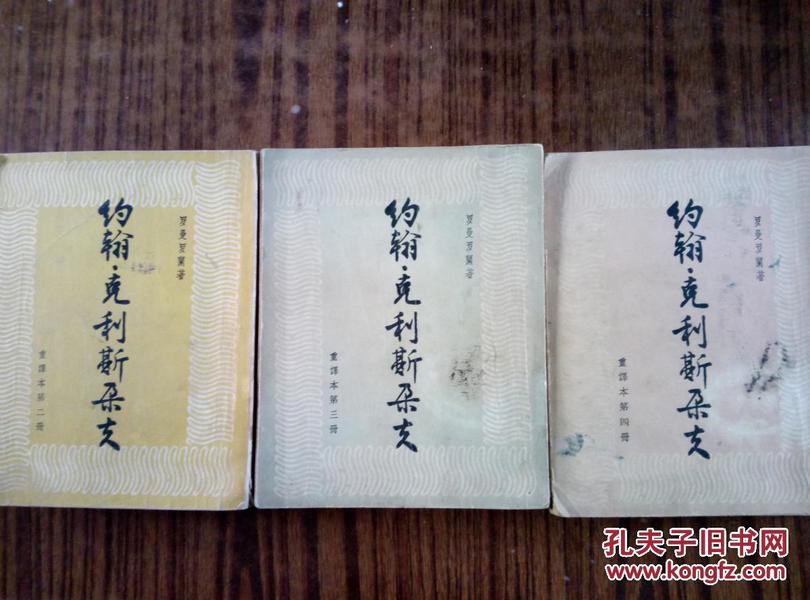 约翰·克利斯朵夫
罗曼罗蘭著
重譯本第二冊
约翰·克利斯朵夫
罗曼罗蘭著
重譯本第三冊
约翰·克利斯朵夫
罗曼罗蘭著
重譯本第四冊
孔夫子旧书网
www.kongfz.com